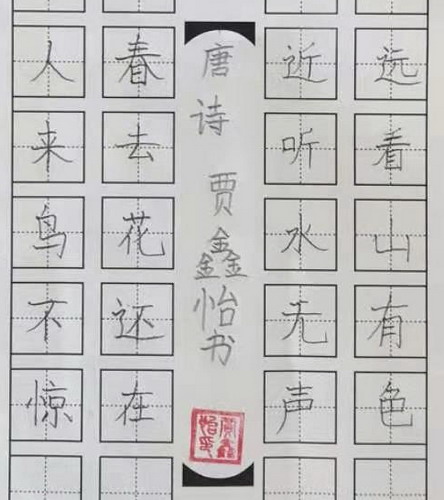 远看山有色
近听水无声
唐诗 贾鑫怡书
贾鑫怡印
春去花还在
人来鸟不惊